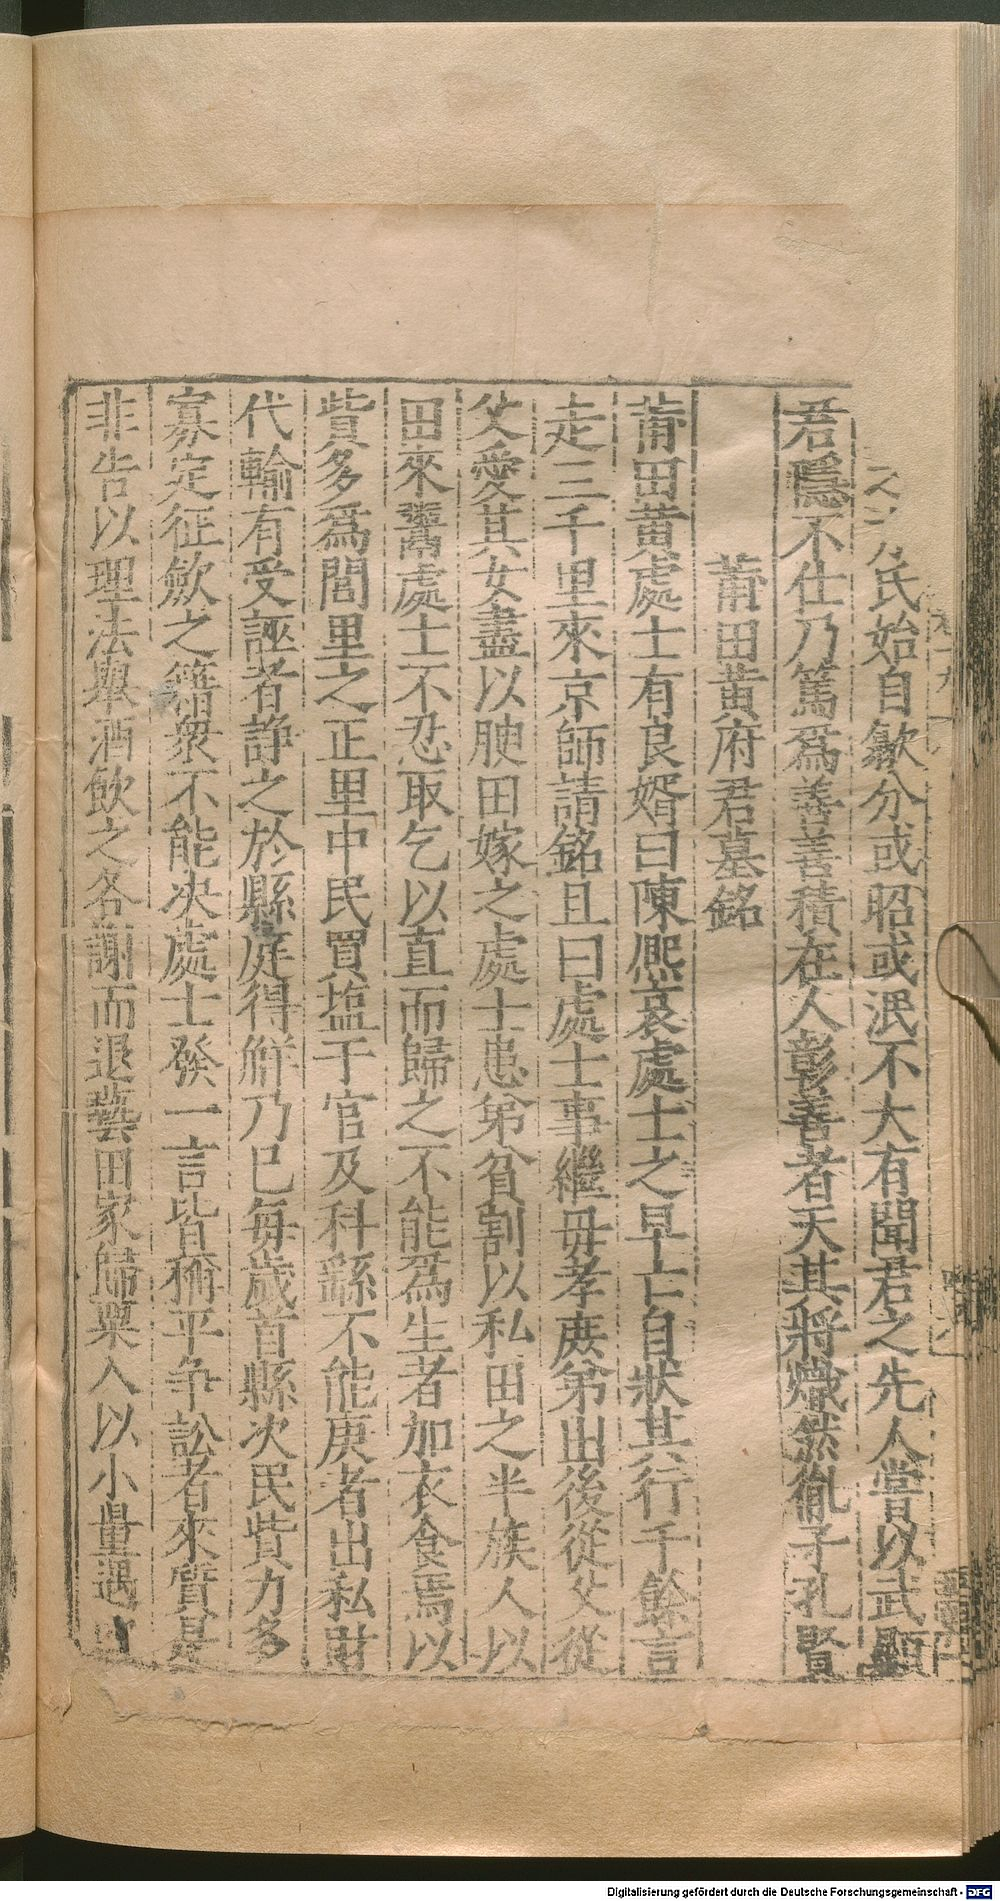 氏始自歙分或昭或泯不大有聞君之先人嘗以武顯
君隱不仕乃篤為善善積在人彰善者天其將熾然胤子孔賢
莆田黃府君墓銘
莆田黃處士有良婿曰陳熈哀處士之早亡自狀其行千餘言
走三千里來京師請銘且曰處士事繼毋孝庶弟出後從父從
父愛其女盡以腴田嫁之處士患弟貧割以私田之半族人以
田來鬻處士不忍取乞以直而歸之不能為生者加衣食焉以
貲多為閭里之正里中民買塩于官及科繇不能庚者出私財
代輸有受誣者諍之於縣庭得觧乃已每歲首縣次民貲力多
寡定征斂之籍衆不能决處士發一言皆稱平争訟者來質是
非告以理法舉酒飲之各謝而退藝田家歸粟入以小量遇
Digitalisierung gefördert durch die Deutsche Forschungsgemeinschaft - DFG